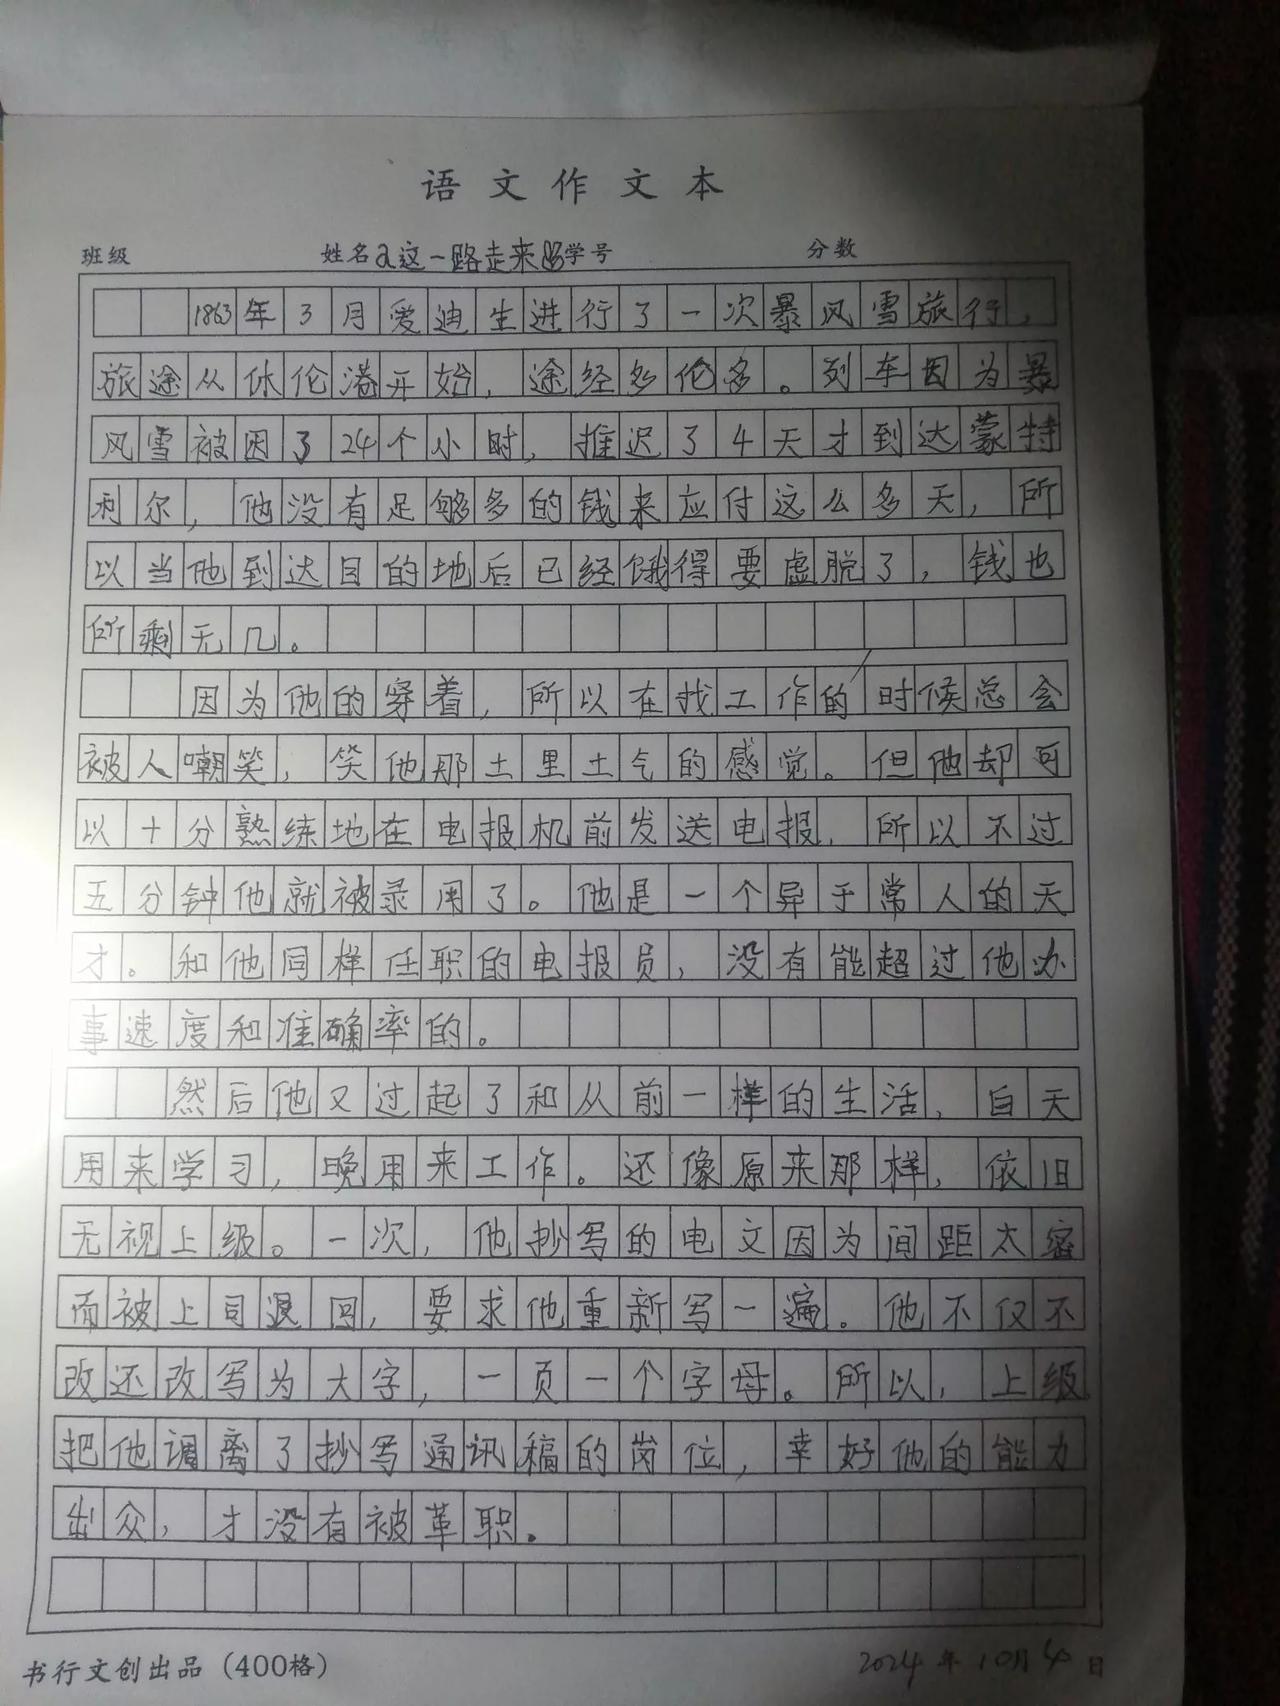 语文作文本
班级 姓名a这一路走来 学号 分数
1863年3月爱迪生进行了一次暴风雪旅行，
旅途从休伦港开始，途经多伦多。列车因为暴
风雪被困了24个小时，推迟了4天才到达蒙特
利尔，他没有足够多的钱来应付这么多天，所
以当他到达目的地后已经饿得要虚脱了，钱也
所剩无几。
因为他的穿着，所以在找工作的时候总会
被人嘲笑，笑他那土里土气的感觉。但他却可
以十分熟练地在电报机前发送电报，所以不过
五分钟他就被录用了。他是一个异于常人的天
才。和他同样任职的电报员，没有能超过他办
事速度和准确率的。
然后他又过起了和从前一样的生活，白天
用来学习，晚用来工作。还像原来那样，依旧
无视上级。一次，他抄写的电文因为间距太密
而被上司退回，要求他重新写一遍。他不仅不
改还改写为大字，一页一个字母。所以，上级
把他调离了抄写通讯稿的岗位，幸好他的能力
出众，才没有被革职。
书行文创出品（400格） 2024年10月4日